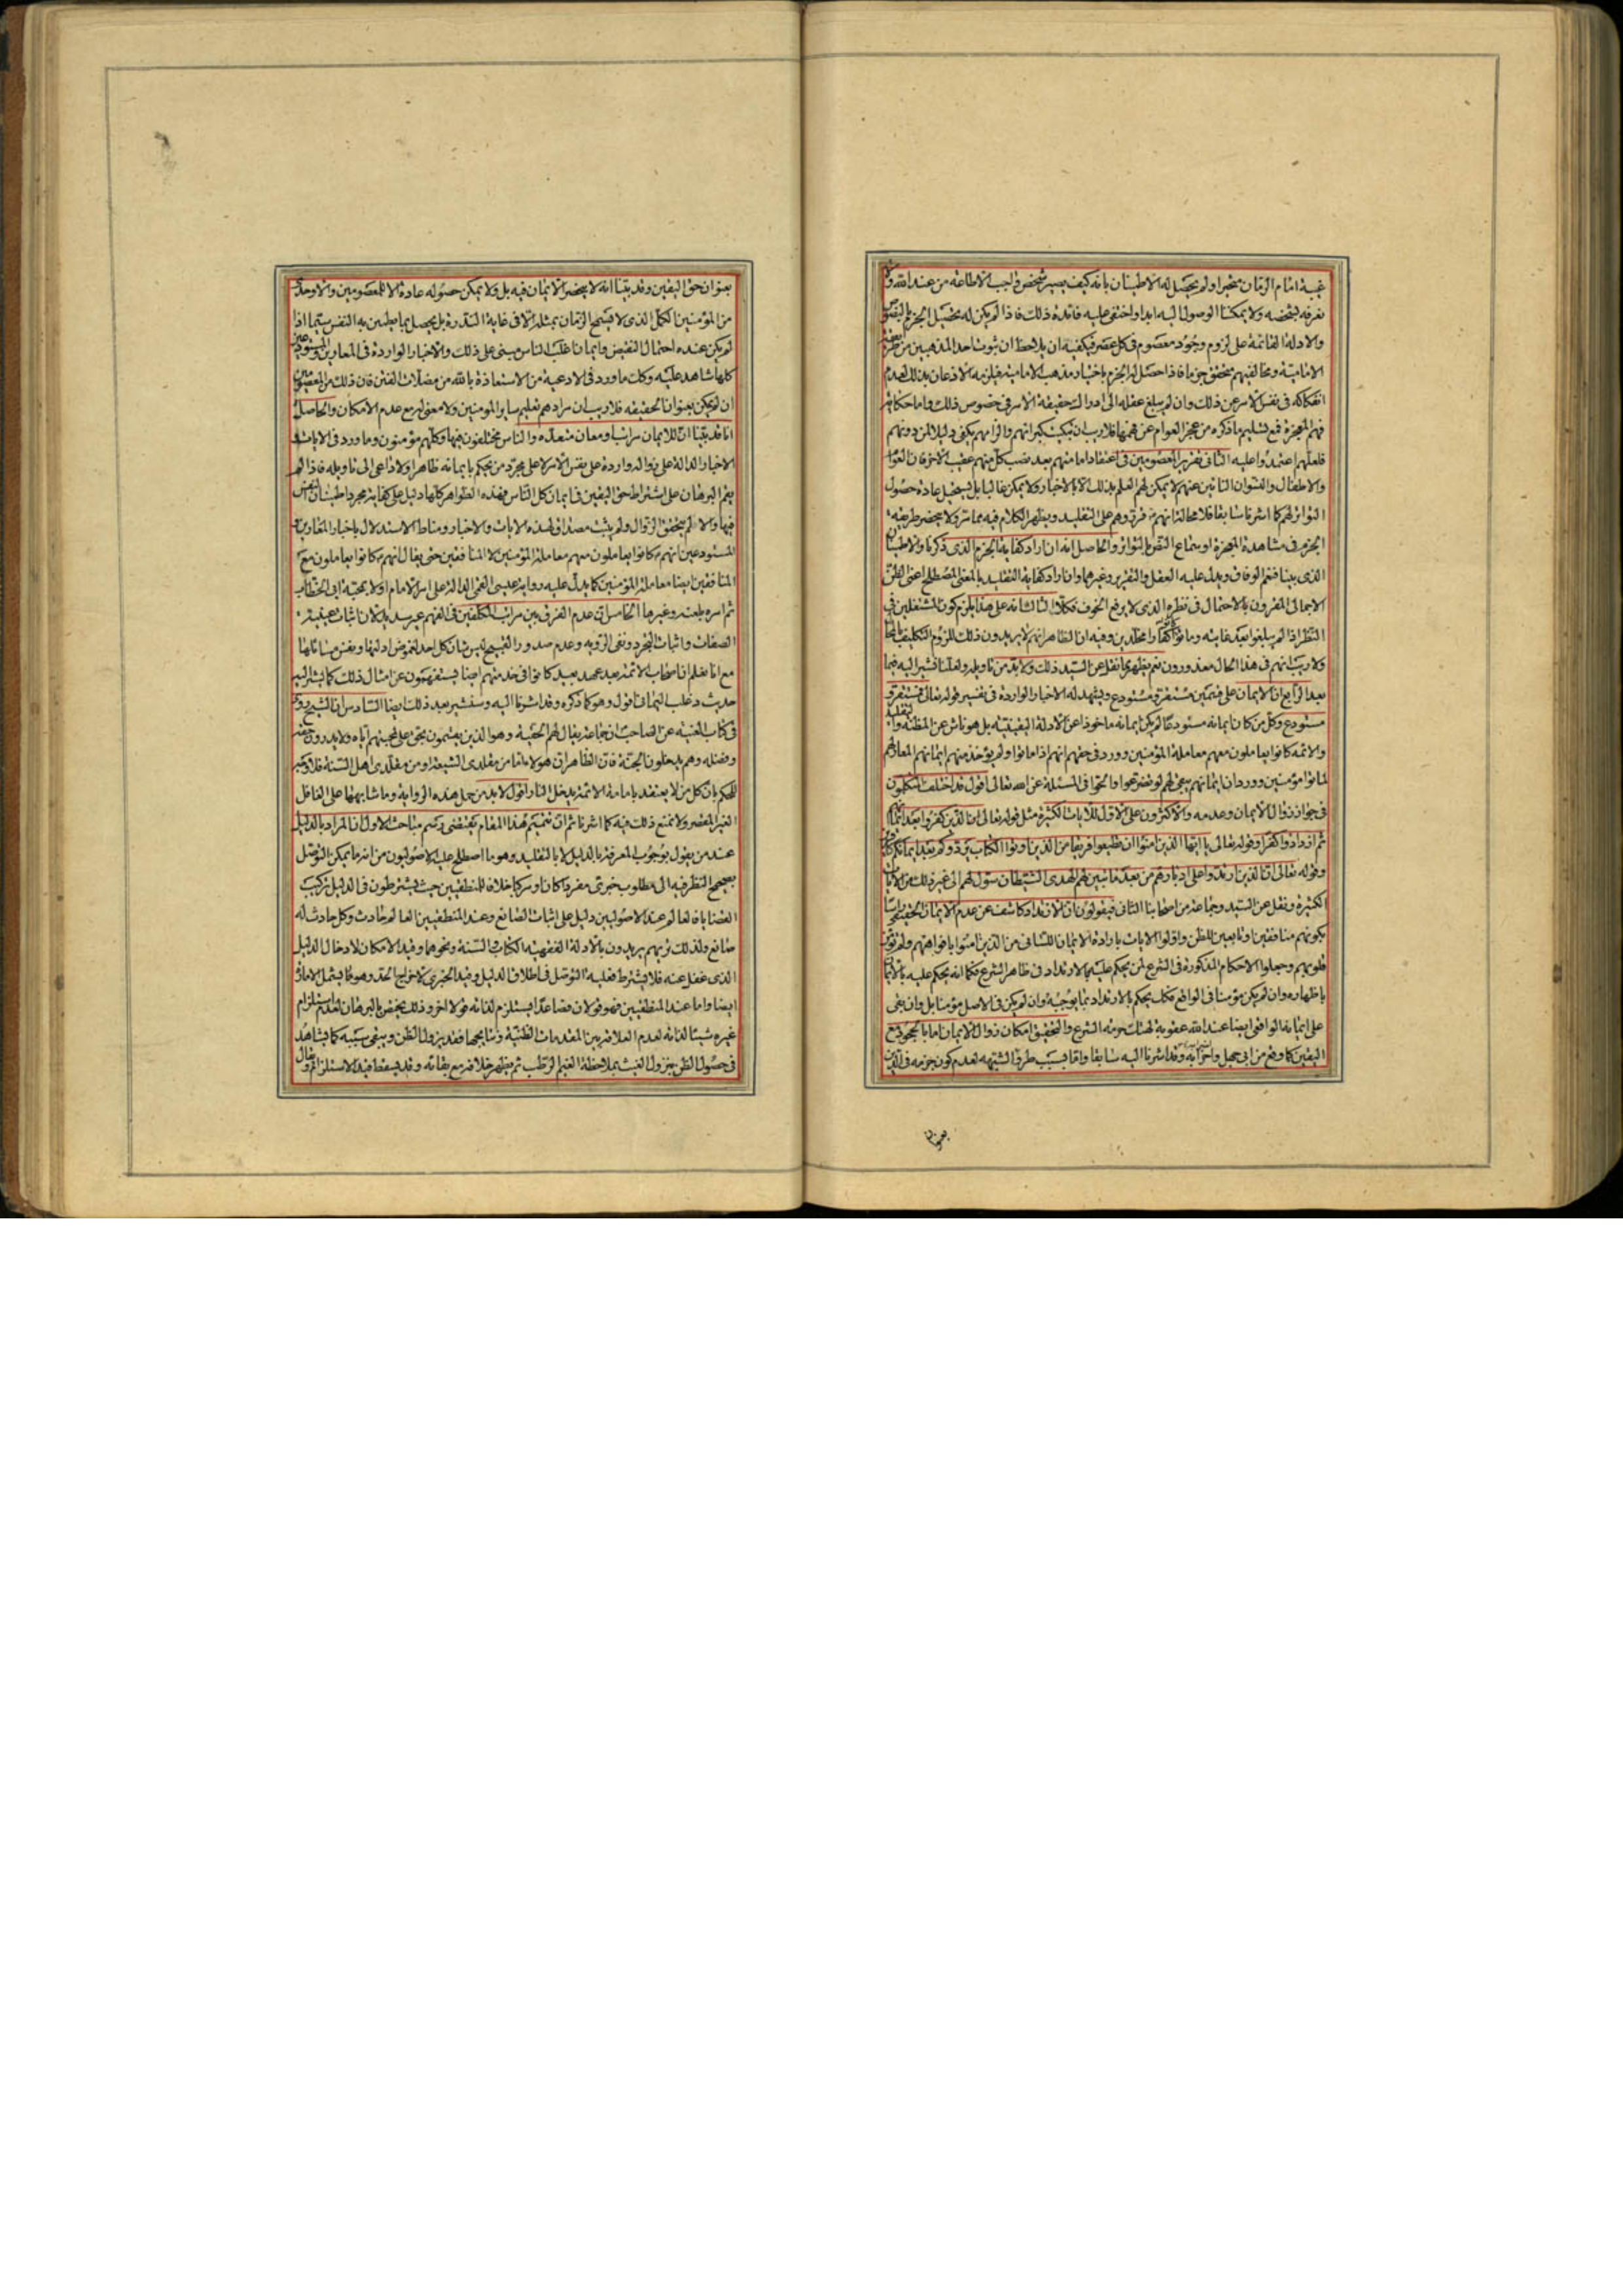 غيبة امام الزمان متحيرا ولم يحصل له الاطمينان بانه كيف يصير شخص واجب الاطاعة من عند الله ولا
نعرفه بشخصه ولا يمكننا الوصول اليه ابدا واختفى عليه فائدة ذلك فاذا لم يكن له تحصيل الجزم بالنصوص
والادلة القائمة على لزوم وجود معصوم في كل عصر فيكفيه ان يلاحظ ان ثبوت احد المذهبين من
الامامية ومخالفيهم متحقق جزما فاذا حصل له الجزم باختيار مذهب الامامية فيلزمه الاذعان بذلك لعدم
انفكاكه في نفس الامر عن ذلك وان لم يبلغ عقله الى ادراك حقيقة الامر في خصوص ذلك واما حكاية
فهم المعجزة فمع تسليم ما ذكره من عجز العوام عن فهمها فلا ريب ان تبكيت كبرائهم والزامهم يكفي دليلا لمن دونهم
فلعلهم اعتمدوا عليه الثاني تقرير المعصومين في اعتقاد امامتهم بعد نصب كل منهم عقيب الآخر فان العوام
والاطفال والنسوان النائين عنهم لا يمكن لهم العلم بذلك الا بالاخبار ولا يمكن غالبا بل يستحيل عادة حصول
التواتر لهم كما اشرنا سابقا فلا محالة انهم فرق وهم على التقليد ويظهر الكلام فيه مما مر ولا ينحصر طريقه
الجزم في مشاهدة المعجزة او سماع النص المتواتر والحاصل انه ان اراد كفاية الجزم الذي ذكرنا والاطمينان
الذي بينا فنعم الوفاق ويدل عليه العقل والتقرير وغيرهما وان اراد كفاية التقليد بالمعنى المصطلح اعني الظن
الاجمالي المقرون بالاحتمال في نظره الذي لا يرفع الخوف فكلا الثالث انه على هذا يلزم كون المشتغلين في
النظر اذا لم يبلغوا بعد غايته وماتوا كفارا مخلدين وفيه ان الظاهر انهم لا يريدون ذلك للزوم التكليف بالمحال
ولا ريب انهم في هذا الحال معذورون نعم يظهر مما نقل عن السيد ذلك ولا بد من تاويله ولعلنا نشير اليه فيما
بعد الرابع ان الايمان على قسمين مستقر ومستودع ويشهد له الاخبار الواردة في تفسير قوله تعالى فمستقر و
مستودع وكل من كان ايمانه مستودعا لم يكن ايمانه ماخوذا عن الادلة اليقينية بل هو ناش عن المظنة والتقليد
والائمة كانوا يعاملون معهم معاملة المؤمنين وورد في حقهم انهم اذا ماتوا ولم يؤخذ منهم ايمانهم المعار لهم
لماتوا مؤمنين وورد ان ايمانهم يبقى لهم لو تضرعوا والحوا في المسئلة عن الله تعالى اقول قد اختلف المتكلمون
في جواز زوال الايمان وعدمه والاكثرون على الاول للآيات الكثيرة مثل قوله تعالى ان الذين كفروا بعد ايمانهم
ثم ازدادوا كفرا وقوله تعالى يا ايها الذين امنوا ان تطيعوا فريقا من الذين اوتوا الكتاب يردوكم بعد ايمانكم كافرين
وقوله تعالى ان الذين ارتدوا على ادبارهم من بعد ما تبين لهم الهدى الشيطان سول لهم الى غير ذلك من الايات
الكثيرة ونقل عن السيد وجماعة من اصحابنا الثاني فيقولون ان الارتداد كاشف عن عدم الايمان الحقيقي
بكونهم منافقين او تابعين للظن واولوا الايات بارادة الايمان اللساني من الذين امنوا بافواههم ولم تؤمن
قلوبهم وجعلوا الاحكام المذكورة في الشرع لمن يحكم عليه بالارتداد في ظاهر الشرع فكما انه يحكم عليه بالايمان
باظهاره وان لم يكن مؤمنا في الواقع فكك يحكم بالارتداد بما يوجبه وان لم يكن في الاصل مؤمنا بل وان بقي
على ايمانه الواقعي ايضا عند الله عقوبة لهتك حرمة الشرع والتحقيق امكان زوال الايمان اما بالجحود مع
اليقين كما وقع من ابي جهل واضرابه وقد اشرنا اليه سابقا واما بسبب طرق الشبهة لعدم كون جزمه في الدين
بعنوان
بعنوان حق اليقين وقد بينا انه لا ينحصر الايمان فيه بل ولا يمكن حصوله عادة الا للمعصومين والاوحدي
من المؤمنين الكمل الذي لا يسمح الزمان بمثله الا في غاية الندرة بل يحصل بما يطمئن به النفس سيما اذا
لم يكن عنده احتمال النقيض وايمان اغلب الناس مبني على ذلك والاخبار الواردة في المعارين والمستودعين
كلها شاهد عليه وكك ما ورد في الادعية من الاستعاذة بالله من مضلات الفتن فان ذلك من المعصومين
ان لم يكن بعنوان الحقيقة فلا ريب ان مرادهم تعليم ساير المؤمنين ولا معنى له مع عدم الامكان والحاصل
انا قد بينا ان للايمان مراتب ومعان متعددة والناس مختلفون فيها وكلهم مؤمنون وما ورد في الايات و
الاخبار الدالة على زواله واردة على نفس الامر لا على مجرد من يحكم بايمانه ظاهرا ولا داعي الى تاويله فاذا لم
يقم البرهان على اشتراط حق اليقين في ايمان كل الناس فهذه الظواهر كلها دليل على كفاية مجرد اطمينان النفس
فيها والا لم يتحقق الزوال ولم يثبت مصداق لهذه الايات والاخبار ومناط الاستدلال باخبار المعارين
المستودعين انهم كانوا يعاملون معهم معاملة المؤمنين لا المنافقين حتى يقال انهم كانوا يعاملون مع
المنافقين ايضا معاملة المؤمنين كما يدل عليه رواية عيسى القمي الدالة على امر الامام اولا بمحبة ابي الخطاب
ثم امره بلعنه وغيرها الخامس ان عدم الفرق بين مراتب المكلفين في الفهم غير سديد لان اثبات عينية
الصفات واثبات التجرد ونفي الرؤية وعدم صدور القبيح ليس شان كل احد لغموض ادلتها ونفس مسائلها
مع انا نعلم ان اصحاب الائمة بعد عهد بعيد كانوا في خدمتهم ايضا يستفهمون عن امثال ذلك كما يشير اليه
حديث دعلب اليماني اقول وهو كما ذكره وقد اشرنا اليه وسنشير بعد ذلك ايضا السادس ان الشيخ روى
في كتاب الغيبة عن الصاحب ان جماعة يقال لهم الحقية وهو الذين يقسمون بحق علي لمحبتهم اياه ولا يدرون حقه
وفضله وهم يدخلون الجنة فان الظاهر ان هؤلاء اما من مقلدي الشيعة او من مقلدي اهل السنة فلا وجه
للحكم بان كل من لا يعتقد بامامة الائمة يدخل النار اقول لا بد من حمل هذه الرواية وما شابهها على الغافل
الغير المقصر ولا نمنع ذلك فيه كما اشرنا ثم ان تتميم هذا المقام يقتضي رسم مباحث الاول ان المراد بالدليل
عند من يقول بوجوب المعرفة بالدليل لا بالتقليد وهو ما اصطلح عليه الاصوليون من انه ما يمكن التوصل
بصحيح النظر فيه الى مطلوب خبري مفردا كان او مركبا خلافا للمنطقيين حيث يشترطون في الدليل تركيب
القضايا فالعالم عند الاصوليين دليل على اثبات الصانع وعند المنطقيين العالم حادث وكل حادث له
صانع ولذلك تريهم يريدون بالادلة الفقهية الكتاب السنة ونحوهما وقيد الامكان لادخال الدليل
الذي غفل عنه فلا يشترط فعلية التوصل في اطلاق الدليل وقيد الخبري لاخراج الحد وهو كما يشمل الامارة
ايضا واما عند المنطقيين فهو قولان فصاعدا يستلزم لذاته قولا اخر وذلك يختص بالبرهان لعدم استلزام
غيره شيئا لذاته لعدم العلاقة بين المقدمات الظنية ونتايجها فقد يزول الظن ويبقى سببه كما يشاهد
في حصول الظن بنزول الغيث بملاحظة الغيم الرطب ثم يظهر خلافه مع بقائه وقد يسقط قيد الاستلزام